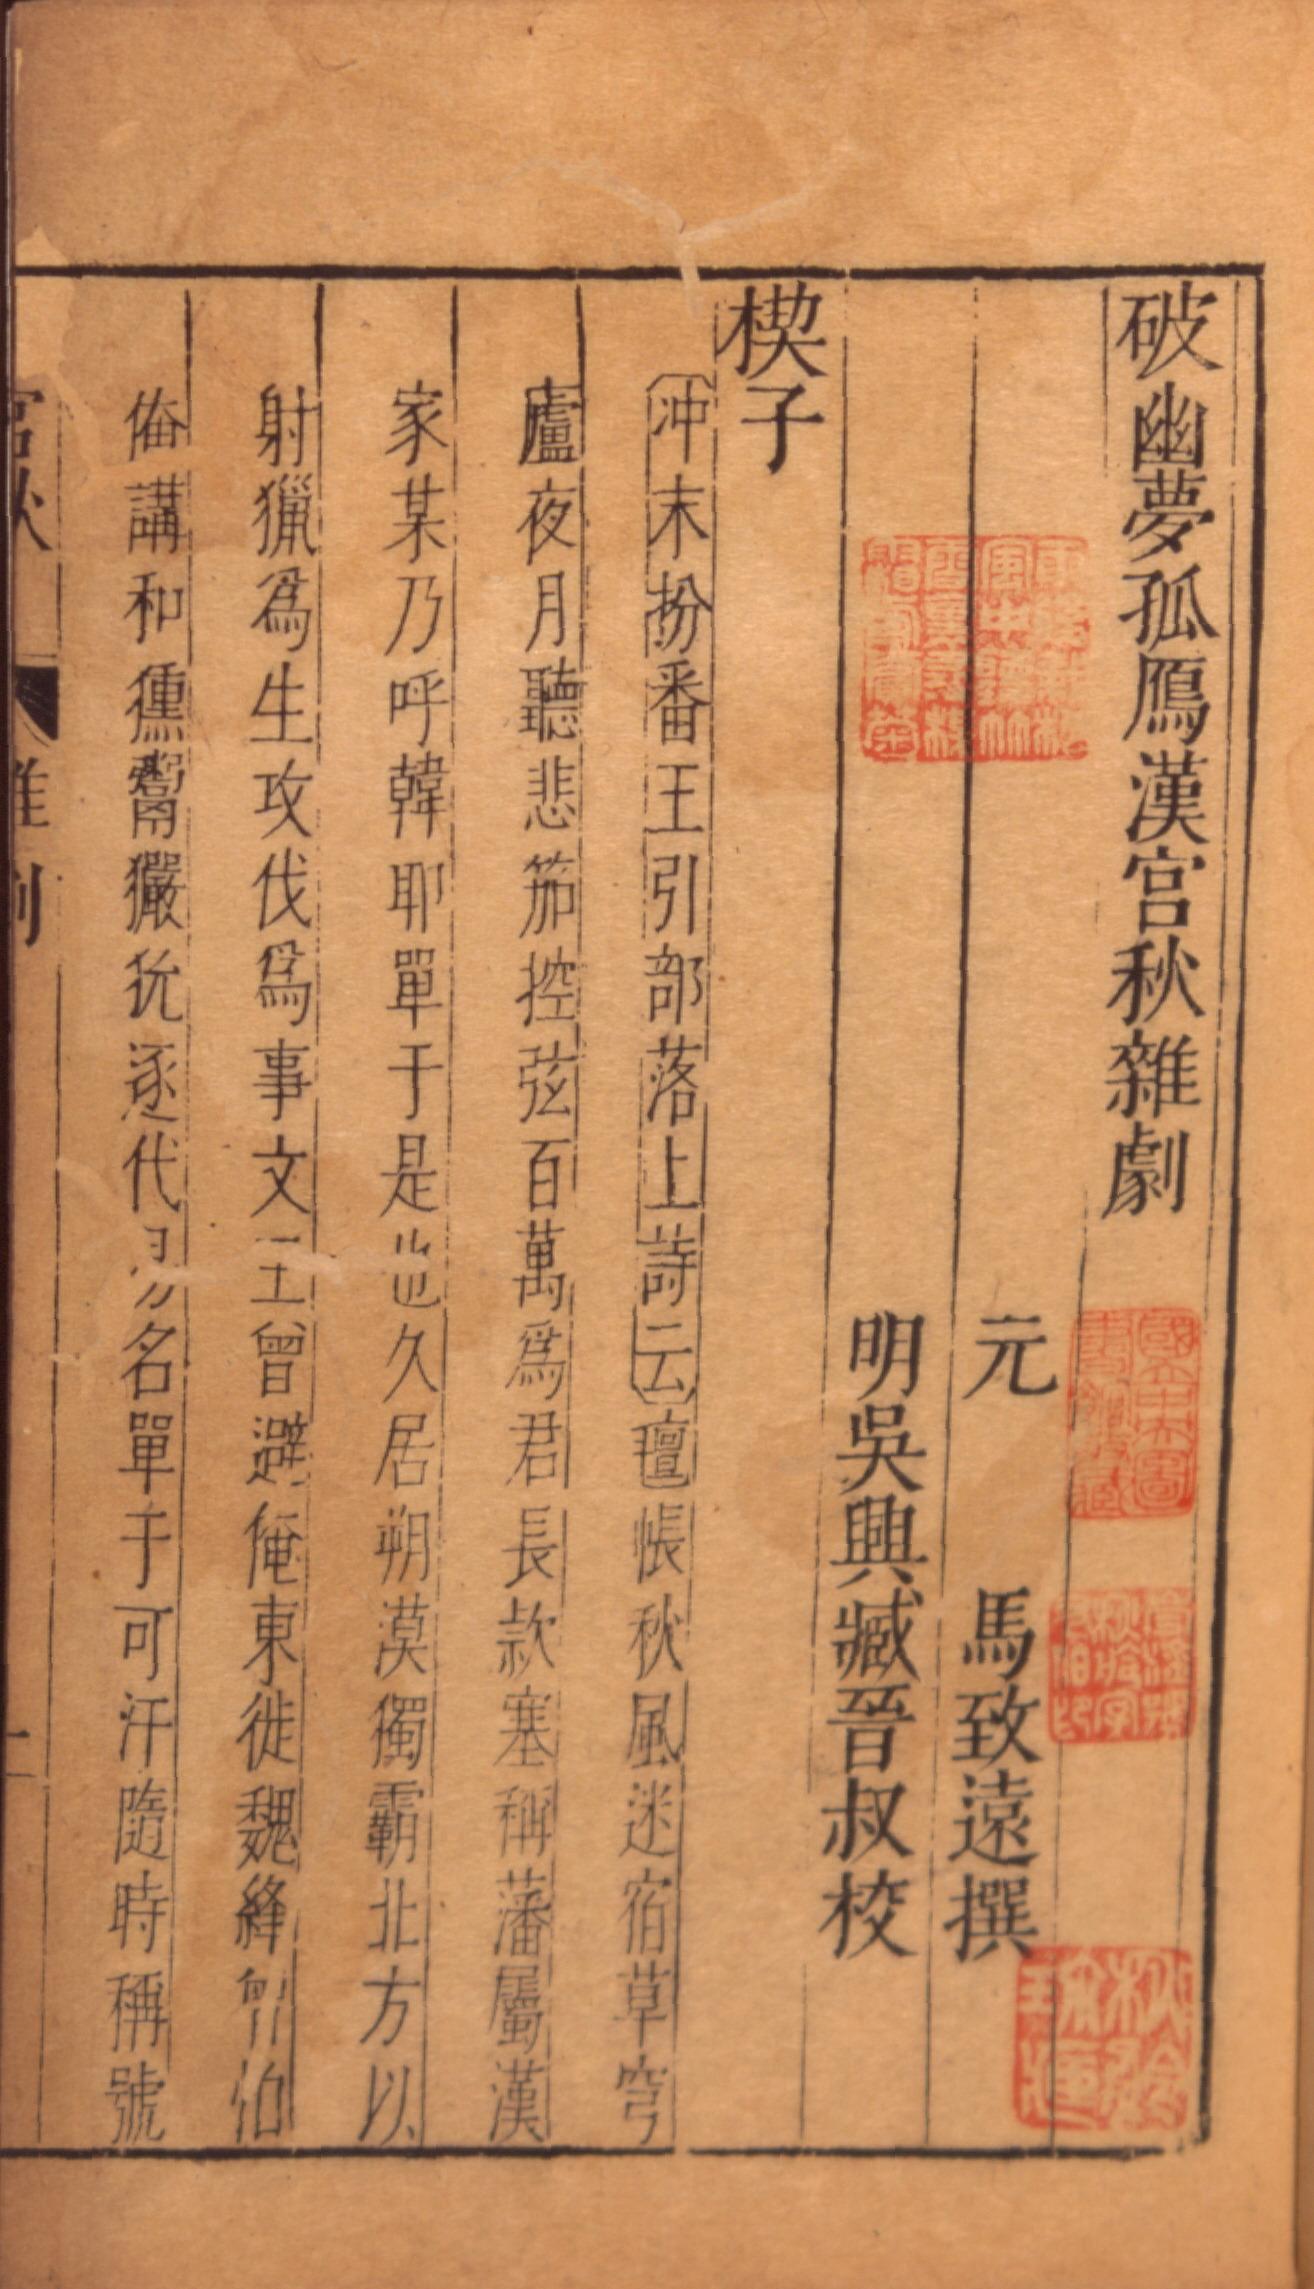 破幽夢孤鴈漢宮秋雜劇
元　馬致遠撰
明吳興臧晉叔校
楔子
〔沖末扮番王引部落上詩云〕氊帳秋風迷宿草穹
廬夜月聽悲笳控弦百萬爲君長款塞稱藩屬漢
家某乃呼韓耶單于是也久居朔漠獨霸北方以
射獵爲生攻伐爲事文王曾避俺東徙魏絳曾怕
俺講和獯鬻玁狁逐代易名單于可汗隨時稱號